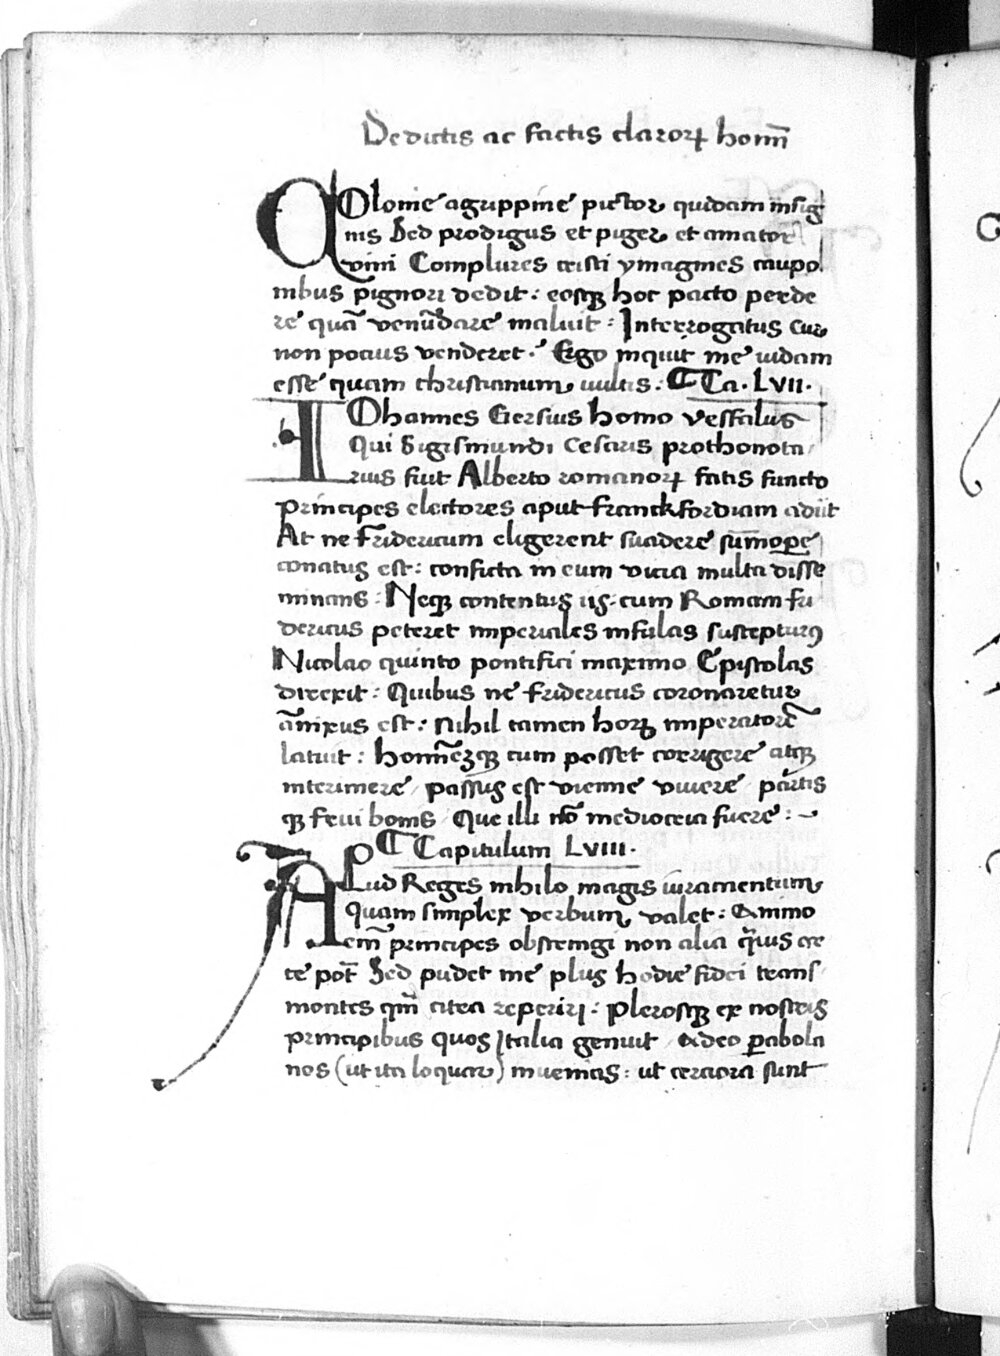 De dictis ac factis claroꝝ homı̄
COlonie agrippine pictor quidam insig
nis Sed prodigus et piger et amator
vini Complures cristi ymagines caupo
nibus pignori dedit: eosqꝫ hoc pacto perde
re quā venūdare maluit: Interrogatus cur
non pocius venderet. Ergo inquit me iudam
esse quam christianum vultis: Ca. LVII.
IOhannes Gersius homo vesfalus
Qui Sigismundi Cesaris prothonota
rius fuit Alberto romanoꝝ fatis functo
principes electores aput franckfordiam adiit
At ne fridericum eligerent suadere sūmopꝑe
conatus est: conficta in eum vicia multa disse
minans: Neqꝫ contentus iis: cum Romam fri
dericus peteret imperiales infulas suscepturꝰ
Nicolao quinto pontifici maximo Epistolas
direxit: Quibus ne fridericus coronaretur
ānixus est: nihil tamen hoꝝ imperatorē
latuit: hominēqꝫ cum posset corrigere atqꝫ
interimere passus est vienne vivere patris
qꝫ frui bonis Que illi nō mediocria fuere:
Capitulum LVIII.
APud Reges nihilo magis iuramentum
quam simplex verbum valet: Animo
em̄ principes obstringi non alia qͣuis cre
te pot̄ Sed pudet me plus hodie fidei trans
montes qm̄ citra reperiri: Plerosqꝫ ex nostris
principibus quos Italia genuit adeo ꝑabola
nos (ut ita loquar) invenias: ut cerciora sunt